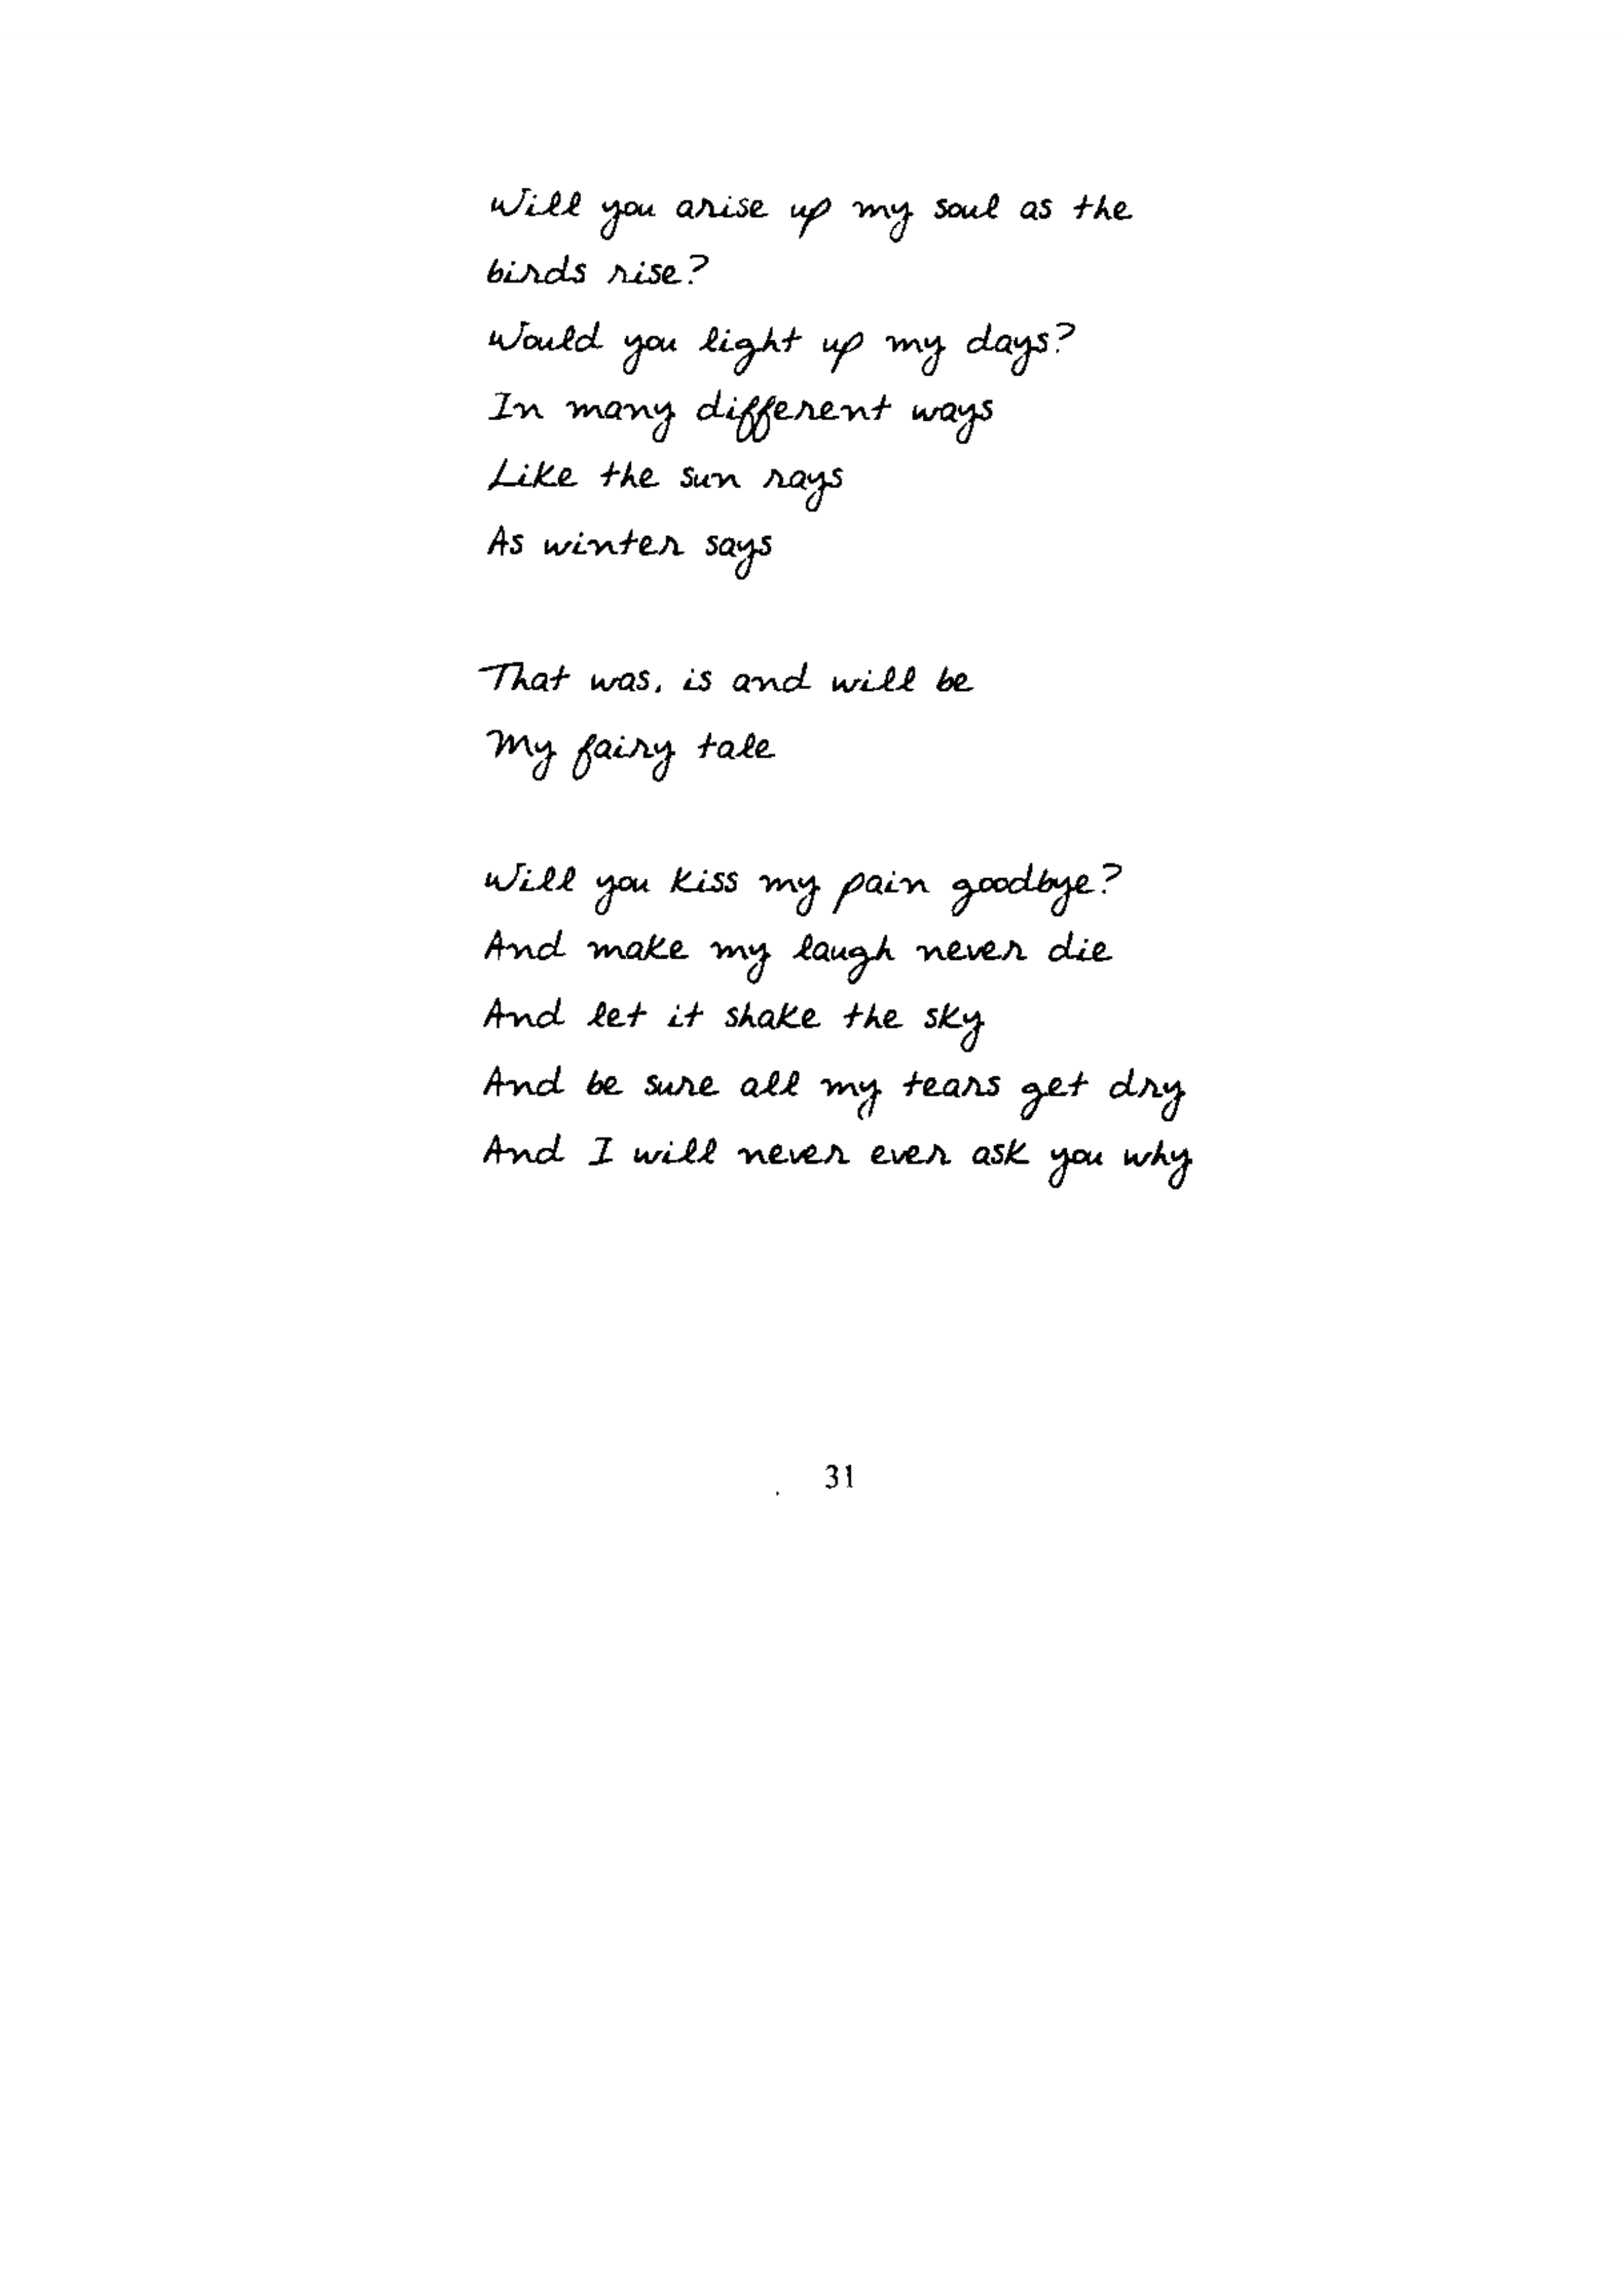 Will you arise up my soul as the
birds rise?
Would you light up my days?
In many different ways
Like the sun rays
As winter says
That was, is and will be
My fairy tale
Will you kiss my pain goodbye?
And make my laugh never die
And let it shake the sky
And be sure all my tears get dry
And I will never ever ask you why
31